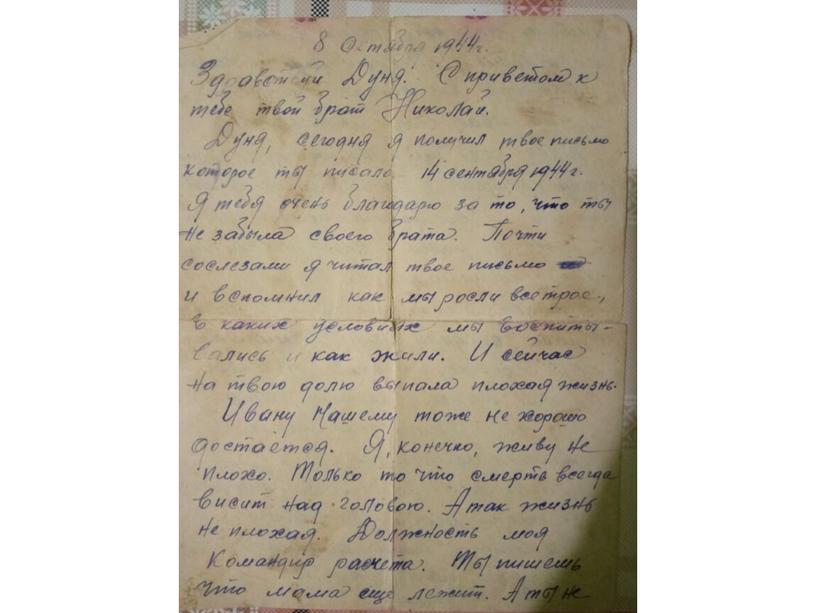 8 Октября 1944г.
Здравствуй Дуня! С приветом к
тебе твой брат Николай.
Дуня, сегодня я получил твое письмо
которое ты писала 14 сентября 1944г.
Я тебя очень благодарю за то, что ты
не забыла своего брата. Почти
сослезами я читал твое письмо
и вспомнил как мы росли все трое,
в каких условиях мы воспиты-
вались и как жили. И сейчас
на твою долю выпала плохая жизнь.
Ивану Нашему тоже не хорошо
достаётся. Я, конечно, живу не
плохо. Только то что смерть всегда
висит над головою. А так жизнь
не плохая. Должность моя
Командир расчета. Ты пишешь
что мама еще лежит. А ты не